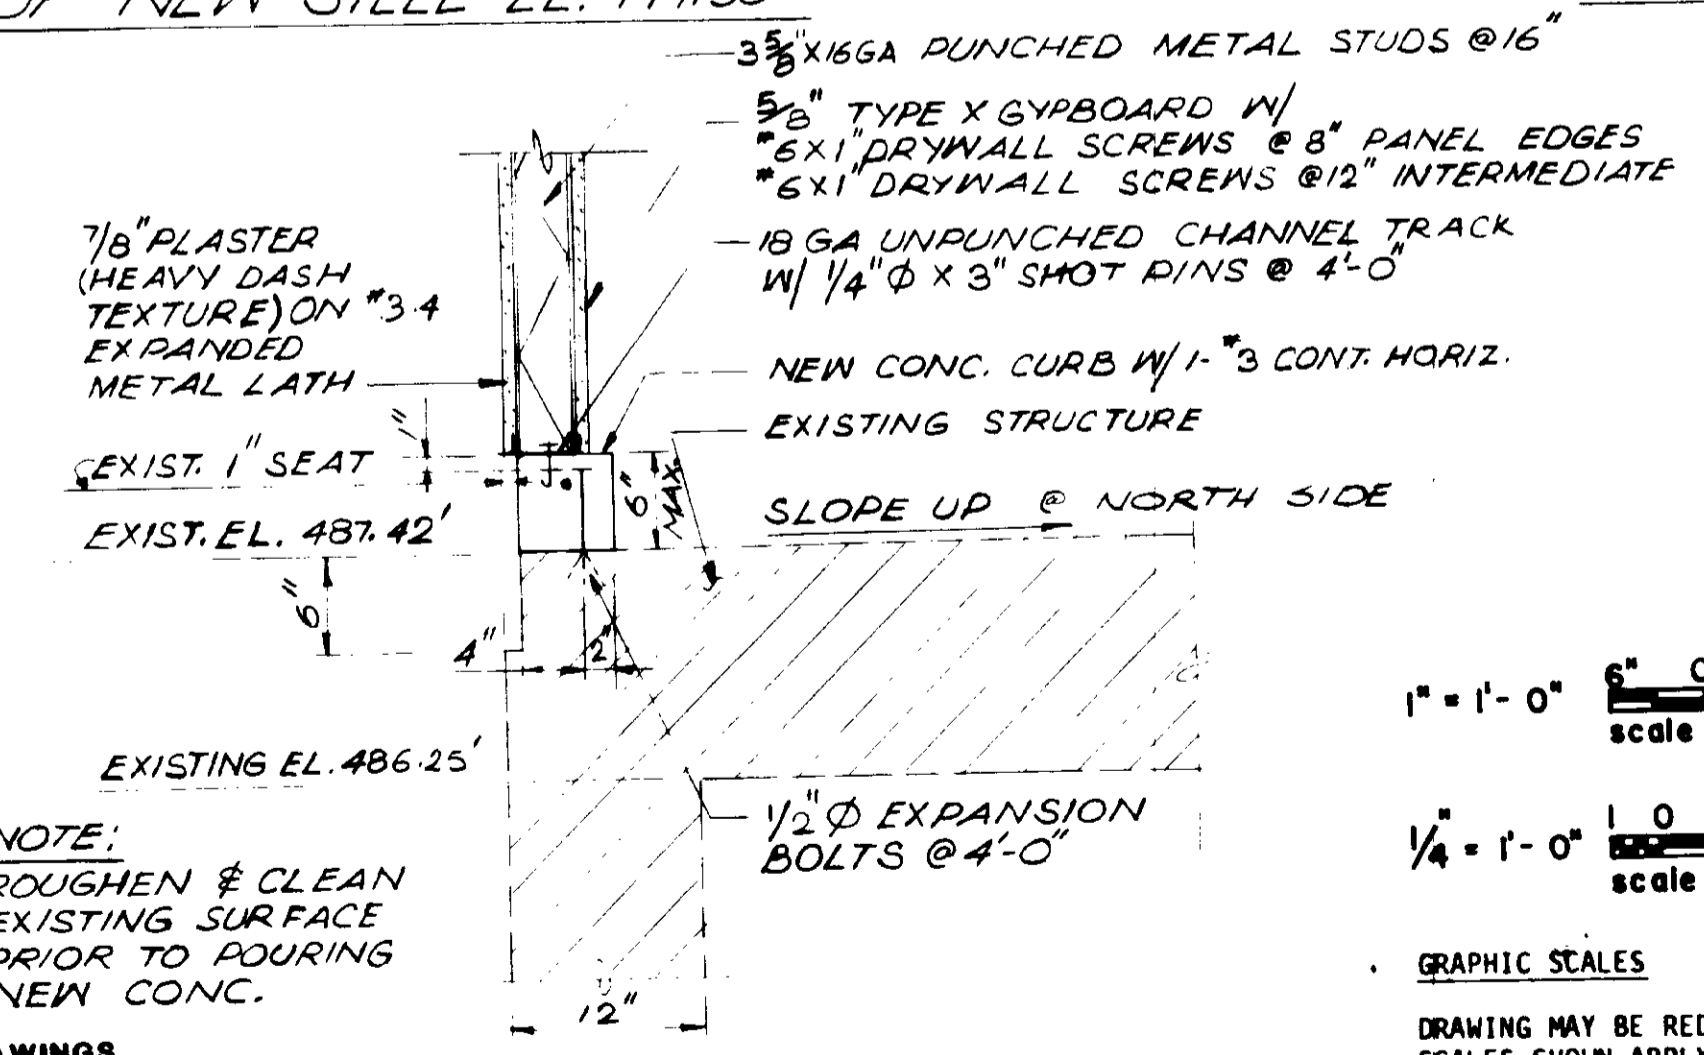 OF NEW STEEL EL.
3 5/8" X 16GA PUNCHED METAL STUDS @ 16"
5/8" TYPE X GYPBOARD W/
#6X1" DRYWALL SCREWS @ 8" PANEL EDGES
#6X1" DRYWALL SCREWS @12" INTERMEDIATE
18 GA UNPUNCHED CHANNEL TRACK
W/ 1/4" Ø X 3" SHOT PINS @ 4'-0"
NEW CONC. CURB W/ 1-#3 CONT. HORIZ.
EXISTING STRUCTURE
SLOPE UP @ NORTH SIDE
7/8" PLASTER
(HEAVY DASH
TEXTURE) ON #3.4
EXPANDED
METAL LATH
1"
EXIST. 1" SEAT
6"
MAX.
EXIST. EL. 487.42'
6"
4"
2"
EXISTING EL. 486.25'
1/2" Ø EXPANSION
BOLTS @ 4'-0"
NOTE:
ROUGHEN & CLEAN
EXISTING SURFACE
PRIOR TO POURING
NEW CONC.
12"
1" = 1'-0"
6" 0
scale
1/4" = 1'-0"
1 0
scale
GRAPHIC SCALES
DRAWING MAY BE RED
SCALES SHOWN APPLY
AWINGS